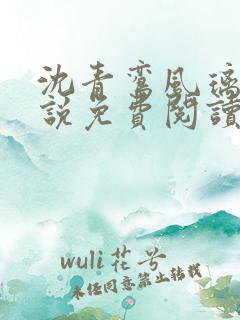 沈青鸾风璃
說免費閱讀
wuli花兮
未经同意禁止转载